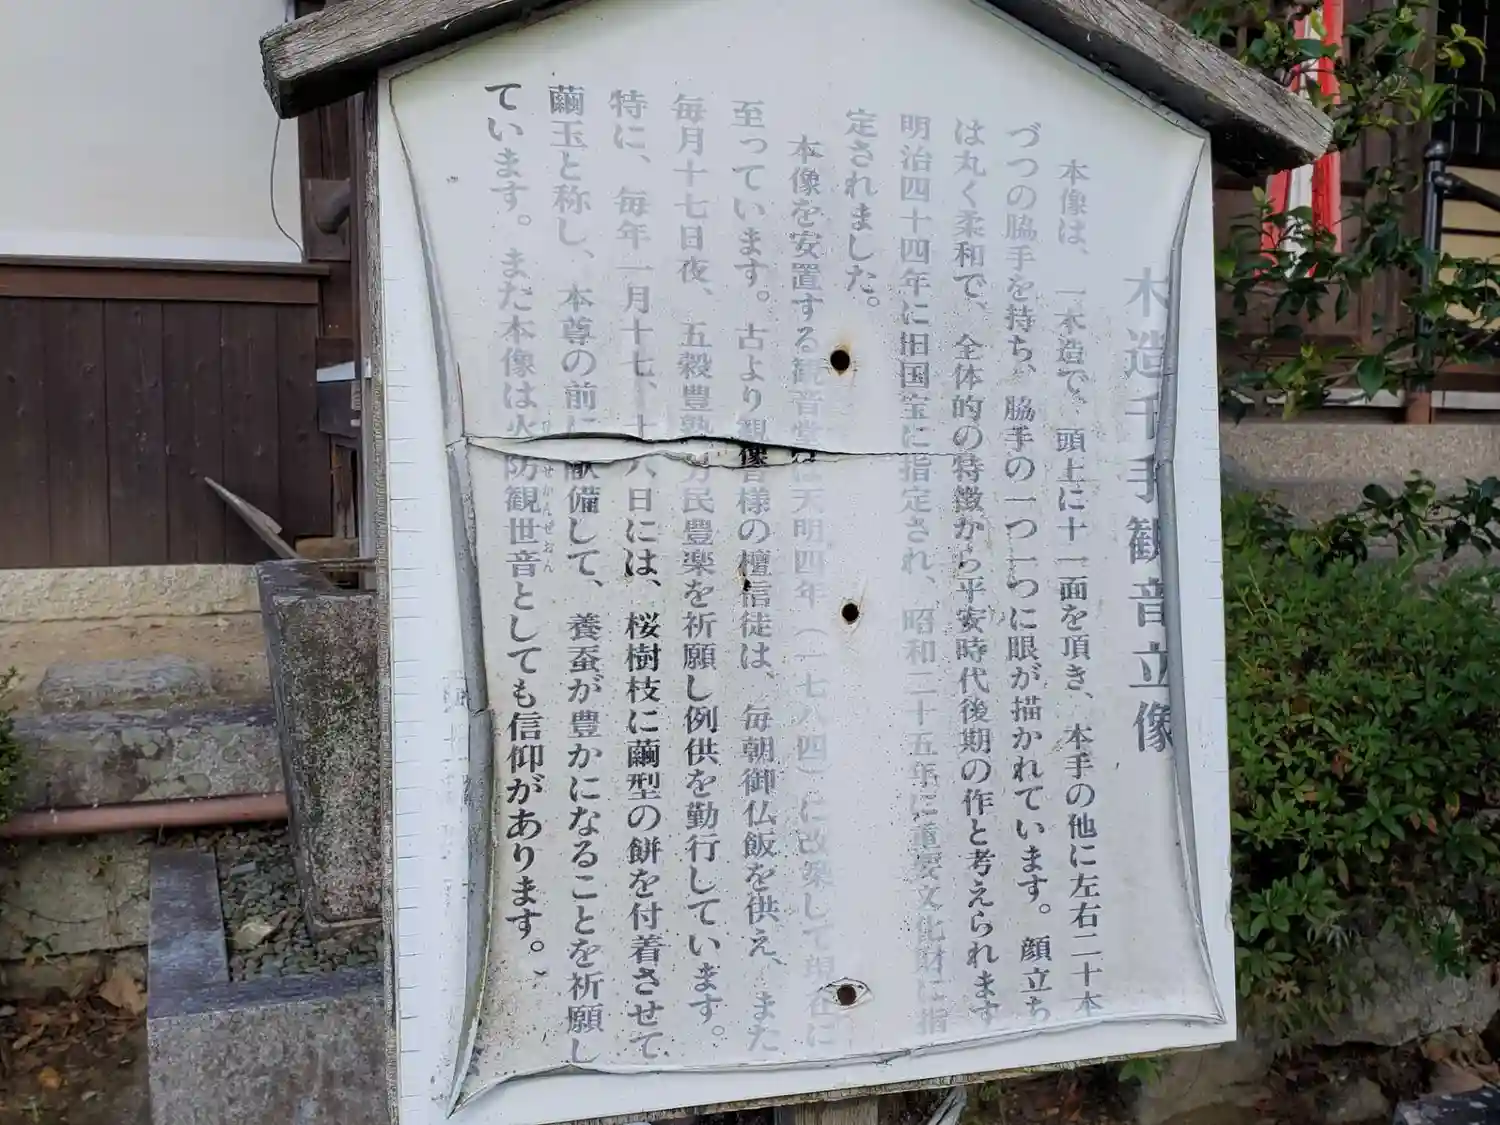 木造千手観音立像
本像は、一木造で、頭上に十一面を頂き、本手の他に左右二十本
づつの脇手を持ち、脇手の一つ一つに眼が描かれています。顔立ち
は丸く柔和で、全体的の特徴から平安時代後期の作と考えられます
明治四十四年に旧国宝に指定され、昭和二十五年に重要文化財に指
定されました。
本像を安置する観音堂は天明四年(一七八四)に改築して現在に
至っています。古より観音様の檀信徒は、毎朝御仏飯を供え、また
毎月十七日夜、五穀豊熟万民豊楽を祈願し例供を勤行しています。
特に、毎年一月十七、十八日には、桜樹枝に繭型の餅を付着させて
繭玉と称し、本尊の前に献備して、養蚕が豊かになることを祈願し
ています。また本像は火防観世音としても信仰があります。